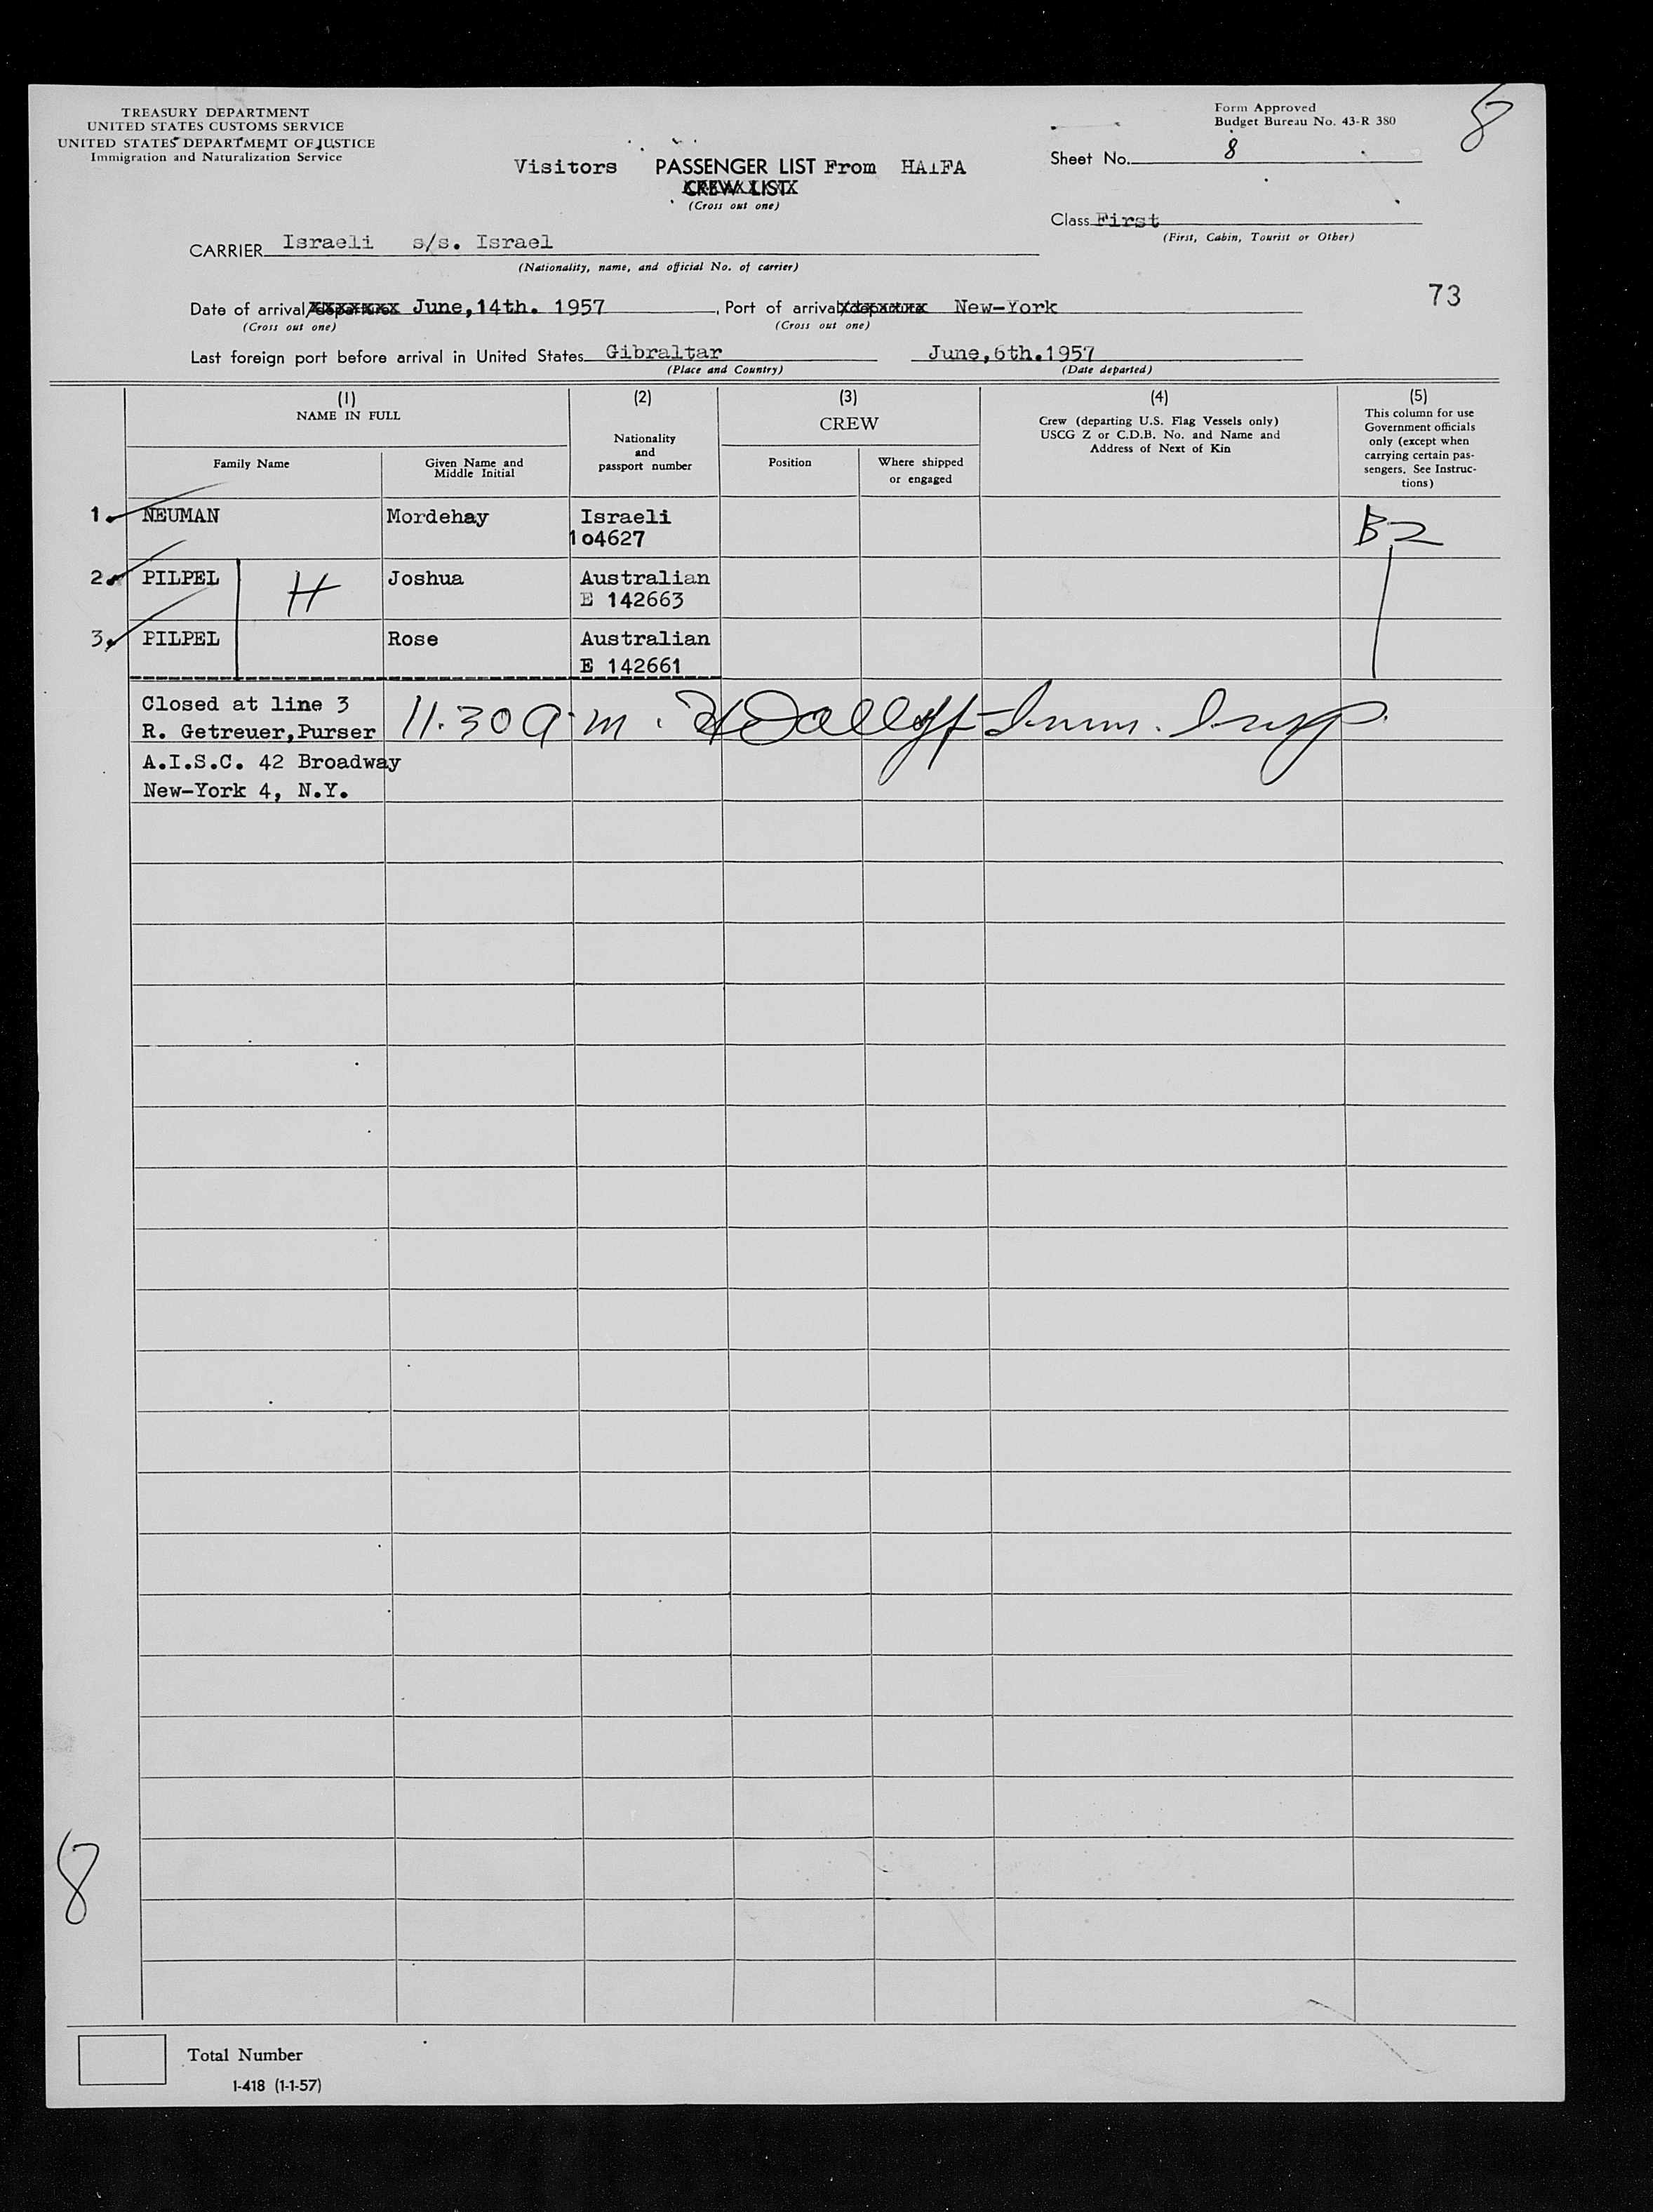 TREASURY DEPARTMENT
UNITED STATES CUSTOMS SERVICE
UNITED STATES DEPARTMEMT OF JUSTICE
Immigration and Naturalization Service
Form Approved
Budget Bureau No. 43-R 380
8
Sheet No. 8
Visitors PASSENGER LIST From HAiFA
CREW LIST
(Cross out one)
Class First
(First, Cabin, Tourist or Other)
CARRIER Israeli s/s. Israel
(Nationality, name, and official No. of carrier)
73
Date of arrival/departure June,14th. 1957, Port of arrival/departure New-York
(Cross out one) (Cross out one)
Last foreign port before arrival in United States Gibraltar June,6th.1957
(Place and Country) (Date departed)
(1) (2) (3) (4) (5)
NAME IN FULL
Family Name
Given Name and Middle Initial
Nationality and passport number
CREW
Position
Where shipped or engaged
Crew (departing U.S. Flag Vessels only)
USCG Z or C.D.B. No. and Name and
Address of Next of Kin
This column for use
Government officials
only (except when
carrying certain pas-
sengers. See Instruc-
tions)
1. NEUMAN Mordehay Israeli B2
1o4627
2. PILPEL H Joshua Australian
E 142663
3. PILPEL Rose Australian
E 142661
Closed at line 3
R. Getreuer,Purser 11.30 a.m. Imm. Insp.
A.I.S.C. 42 Broadway
New-York 4, N.Y.
8
Total Number
I-418 (1-1-57)